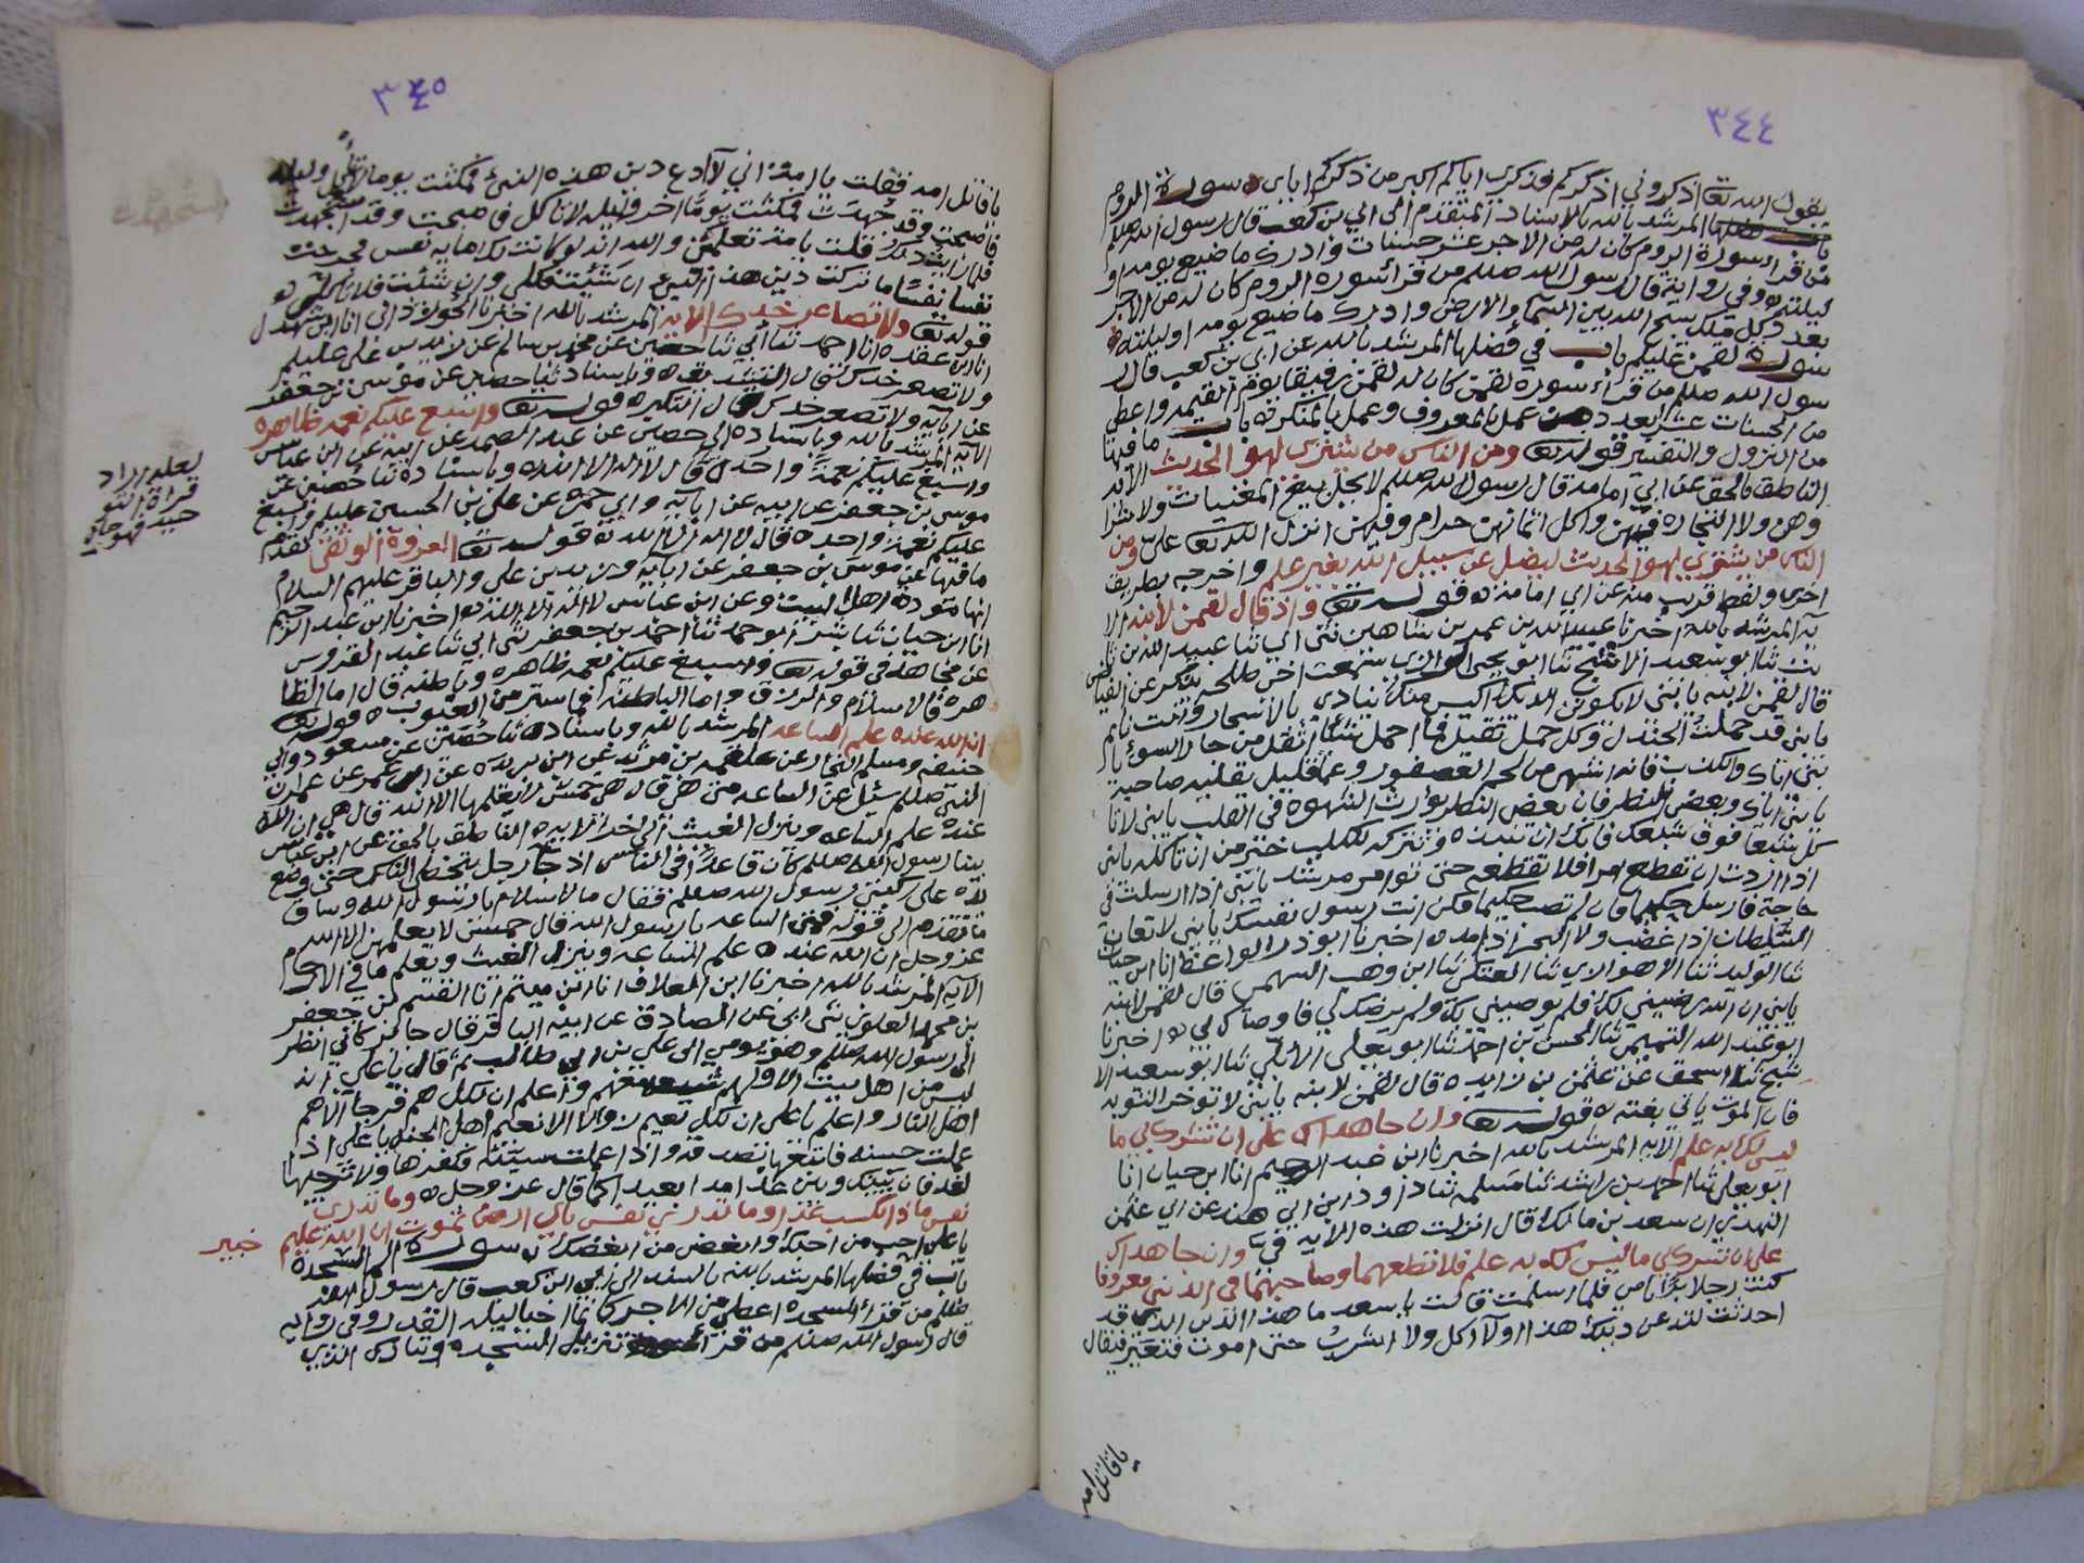 ٣٤٤
يقول الله تعا اذكروني اذكركم فذكري اياكم اكبر من ذكركم اياي ه سورة الروم
باب فضلها المرشد بالله بالاسناد المتقدم الى ابي بن كعب قال رسول الله صللم
من قرا سورة الروم كان له من الاجر عشر حسنات وادرك ما ضيع يومه او
ليلته ه وفي رواية قال رسول الله صللم من قرأ سورة الروم كان له من الاجر
بعدد كل ملك يسبح الله بين السما والارض وادرك ما ضيع يومه او ليلته ه
سورة لقمن عليلم باب في فضلها المرشد بالله عن ابي بن كعب قال ر
سول الله صللم من قرأ سورة لقمن كان له لقمن رفيقا يوم القيمه واعطي
من الحسنات عشرا بعدد من عمل بالمعروف وعمل بالمنكر ه باب ما فيها
من النزول والتفسير قوله تعا ومن الناس من يشتري لهو الحديث الايه
الناطق بالحق عن ابي امامه قال رسول الله صللم لا يحل بيع المغنيات ولا شرا
وهن ولا التجاره فيهن واكل اثمانهن حرام وفيهن انزل الله تعا علي ومن
الناس من يشتري لهو الحديث ليضل عن سبيل الله بغير علم واخرجه بطريق
اخرى ولفظ قريب منه عن ابي امامة ه قوله تعا واذ قال لقمن لابنه الا
يه المرشد بالله اخبرنا عبيد الله بن عمر بن شاهين ثني ابي ثنا عبيد الله بن ثا
بت ثنا ابو سعيد الاشج ثنا ابو يحيى الرازي سمعت اخي طلحه يذكر عن الفياض
قال لقمن لابنه يا بني لا يكونن الديك اكيس منك ينادي بالاسحار وانت نايم
يا بني قد حملت الجندل وكل حمل ثقيل فما احمل شيئا اثقل من جار السوء يا
بني اياك والكذب فانه اشهى من لحم العصفور وعما قليل يقليه صاحبه
يا بني اياك وبعض النظر فان بعض النظر يؤرث الشهوة في القلب يا بني لا تا
كل شبعا فوق شبعك فانك ان تنبذه وتتركه للكلب خير من ان تاكله يا بني
اذا اردت ان تقطع امرا فلا تقطعه حتى توامر مرشدا يا بني اذا ارسلت في
حاجة فارسل حكيما فان لم تصب حكيما فكن انت رسول نفسك يا بني لا تعان
السلطان اذا غضب ولا البحر اذا مد ه اخبرنا ابو ذر الواعظ انا ابن حيان
ثنا الوليد ثنا الاهوازي ثنا العتكي ثنا ابن وهب السهمي قال لقمن لابنه
يا بني ان الله رضيني لك فلم يوصيني بك ولم يرضك لي فاوصاك بي ه اخبرنا
ابو عبد الله التميمي ثنا الحسن بن احمد ثنا ابو يعلى الأبلي ثنا ابو سعيد الا
شج ثنا اسحق عن عثمن بن زايده قال لقمن لابنه يا بني لا توخر التوبه
فان الموت ياتي بغته ه قوله تعا وان جاهداك على ان تشرك بي ما
ليس لك به علم الايه المرشد بالله اخبرنا ابن عبد الرحيم انا ابن حيان انا
ابو يعلى ثنا احمد بن راشد ثنا مسلمه ثنا داوود بن ابي هند عن ابي عثمن
النهدي ان سعد بن مالك قال انزلت هذه الايه فيّ وان جاهداك
على ان تشرك بي ما ليس لك به علم فلا تطعهما وصاحبهما في الدنيا معروفا
كنت رجلا برا بامي فلما اسلمت قالت يا سعد ما هذا الدين الذي قد
احدثت لتدعن دينك هذا او لا اكل ولا اشرب حتى اموت فتعير فيقال
يا قاتل امه
٣٤٥
يا قاتل امه فقلت يا امة اني لا ادع ديني هذا لشئ فمكثت يوما لا تاكل وليلة
فاصبحت وقد جهدت فمكثت يوما اخر وليله لا تاكل فاصبحت وقد استجهدت
فلما رايت ذلك قلت يا مة تعلمين والله انه لو كانت لك مايه نفس فخرجت
نفسا نفسا ما تركت ديني هذا لشيئ ان شئت فكلي وان شئت فلا تاكلي ه
قوله تعا ولا تصاعر خدك الايه المرشد بالله اخبرنا الجوزداني انا ابن شهدل
انا ابن عقده انا احمد ثنا ابي ثنا حصين عن محمد بن سالم عن زيد بن علي عليلم
ولا تصعر خدك قال التشديق ه وباسناده ثنا حصين عن موسى بن جعفر
عن ابايه ولا تصعر خدك قال التكبر ه قوله تعا واسبغ عليكم نعمه ظاهره
الايه المرشد بالله وباسناده الى حصين عن عبد الصمد عن ابيه عن ابن عباس
واسبغ عليكم نعمةً واحدة قال لا اله الا الله ه وباسناده ثنا حصين عن
موسى بن جعفر عن ابيه عن ابايه وابي حمزه عن علي بن الحسين عليلم واسبغ
عليكم نعمة واحده قال لا اله الا الله ه قوله تعا العروة الوثقى تقدم
ما فيها عن موسى بن جعفر عن ابايه وزيد بن علي والباقر عليهم السلام
انها مودة اهل البيت وعن ابن عباس لا اله الا الله ه اخبرنا ابن عبد الرحيم
انا ابن حيان ثنا بشر ابو حمد ثنا احمد بن جعفر ثني ابي ثنا عبد القدوس
عن مجاهد في قوله تعا واسبغ عليكم نعمه ظاهره وباطنه قال اما الظا
هره فالاسلام والرزق واما الباطنه فما ستر من العيوب ه قوله تعا
ان الله عنده علم الساعه المرشد بالله وباسناده ثنا حصين عن مسعود وابي
حنيفه ومسلم النجار عن علقمه بن مرثد عن ابن بريده عن ابن عمر عن عمر ان
النبي صللم سئل عن الساعه متى هي قال هي خمس لا يعلمها الا الله قال هي ان الله
عنده علم الساعه وينزل الغيث الى اخر الايه ه الناطق بالحق عن ابن عباس
بينا رسول الله صللم كان قاعدا في الناس اذ جا رجل يتخطى الناس حتى وضع
يده على ركبتي رسول الله صللم فقال ما الاسلام يا رسول الله وساق
ما تقدم الى قوله فمتى الساعه يا رسول الله قال خمس لا يعلمهن الا الله
عز وجل ان الله عنده علم الساعه وينزل الغيث ويعلم ما في الارحام
الايه المرشد بالله اخبرنا ابن العلاف انا ابن ميثم انا القسم بن جعفر
بن محمد العلوي ثني ابي عن الصادق عن ابيه الباقر قال جابر كاني انظر
الى رسول الله صللم وهو يومي الى علي بن ابي طالب ثم قال يا علي انه
ليس من اهل بيت الا ولهم شيعه منهم واعلم ان لكل هم فرجا الا هم
اهل النار واعلم يا علي ان لكل نعيم زوالا الا نعيم اهل الجنه يا علي اذا
عملت حسنه فاتبعها بصدقه واذا عملت سيئه فكفرها ولا تؤجلها
لغد فان بينك وبين غد امدا بعيدا كما قال عز وجل ه وما تدري
نفس ماذا تكسب غدا وما تدري نفس باي ارض تموت ان الله عليم خبير
يا علي احب من احبك وابغض من ابغضك ه سورة الم السجدة
باب في فضلها المرشد بالله بالسند الى ابي ابن كعب قال رسول الله
صللم من قرأ السجده اعطي من الاجر كانما احيا ليله القدر وفي روايه
قال رسول الله صللم من قرأ تنزيل السجده وتبارك الذي
لعله اراد
قراة التو
حيد فهو جاي
استجهدت